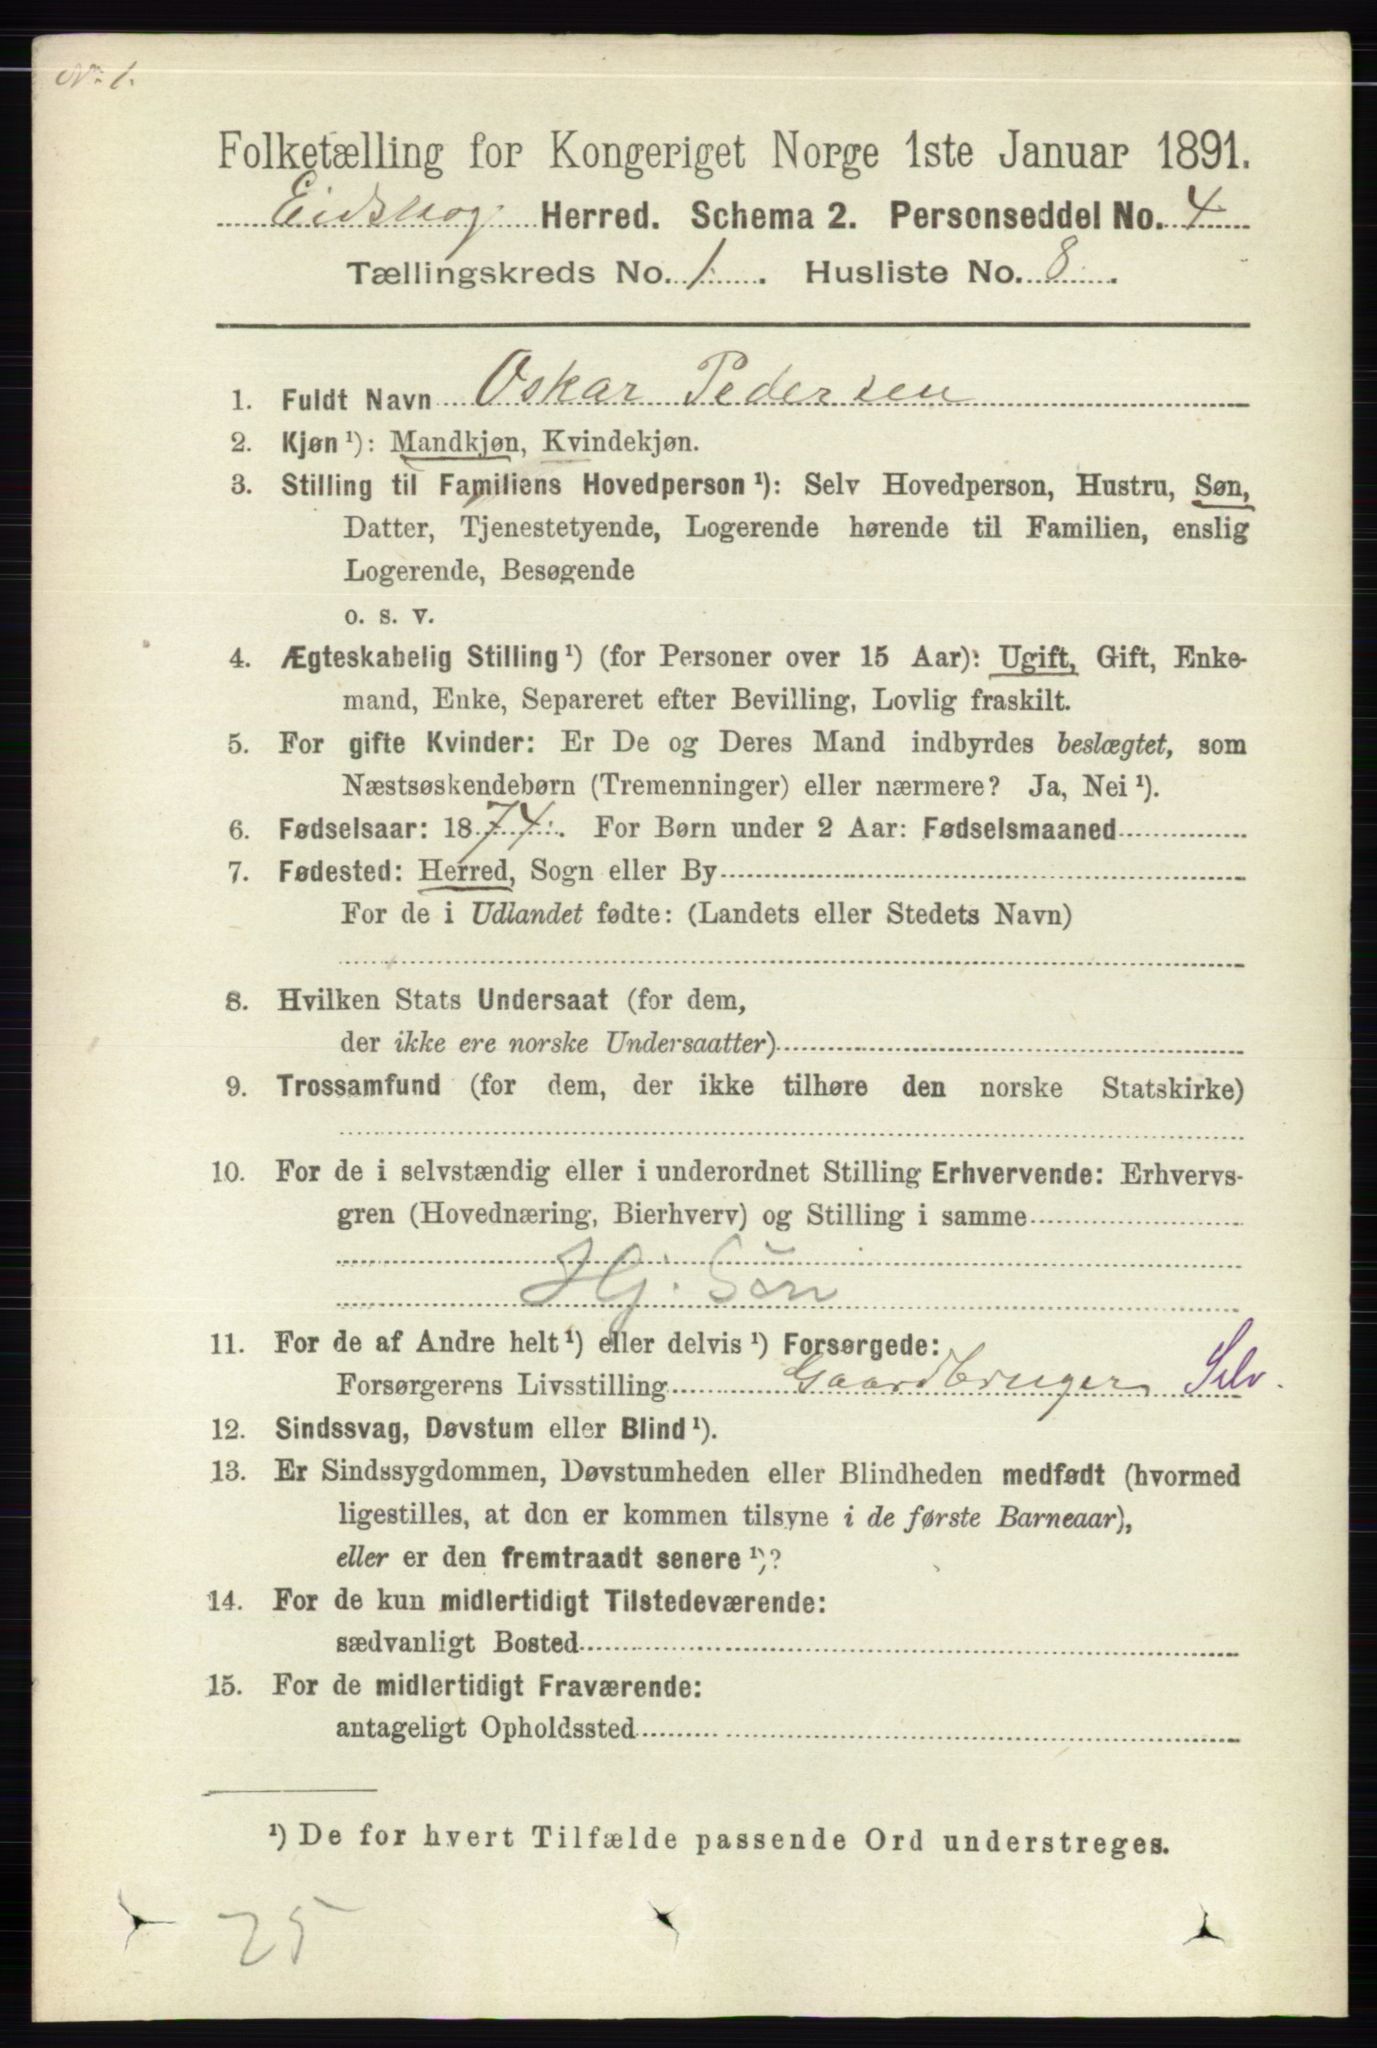 No. 1.
Folketælling for Kongeriget Norge 1ste Januar 1891.
Eidskog Herred. Schema 2. Personseddel No. 4
Tællingskreds No. 1. Husliste No. 8.
1. Fuldt Navn Oskar Pedersen
2. Kjøn ¹): Mandkjøn, Kvindekjøn.
3. Stilling til Familiens Hovedperson ¹): Selv Hovedperson, Hustru, Søn,
Datter, Tjenestetyende, Logerende hørende til Familien, enslig
Logerende, Besøgende
o. s. v.
4. Ægteskabelig Stilling ¹) (for Personer over 15 Aar): Ugift, Gift, Enke-
mand, Enke, Separeret efter Bevilling, Lovlig fraskilt.
5. For gifte Kvinder: Er De og Deres Mand indbyrdes beslægtet, som
Næstsøskendebørn (Tremenninger) eller nærmere? Ja, Nei ¹).
6. Fødselsaar: 1874. For Børn under 2 Aar: Fødselsmaaned
7. Fødested: Herred, Sogn eller By
For de i Udlandet fødte: (Landets eller Stedets Navn)
8. Hvilken Stats Undersaat (for dem,
der ikke ere norske Undersaatter)
9. Trossamfund (for dem, der ikke tilhøre den norske Statskirke)
10. For de i selvstændig eller i underordnet Stilling Erhvervende: Erhvervs-
gren (Hovednæring, Bierhverv) og Stilling i samme
Hj. Søn
11. For de af Andre helt ¹) eller delvis ¹) Forsørgede:
Forsørgerens Livsstilling Gaardbruger Selv.
12. Sindssvag, Døvstum eller Blind ¹).
13. Er Sindssygdommen, Døvstumheden eller Blindheden medfødt (hvormed
ligestilles, at den er kommen tilsyne i de første Barneaar),
eller er den fremtraadt senere ¹)?
14. For de kun midlertidigt Tilstedeværende:
sædvanligt Bosted
15. For de midlertidigt Fraværende:
antageligt Opholdssted
¹) De for hvert Tilfælde passende Ord understreges.
25